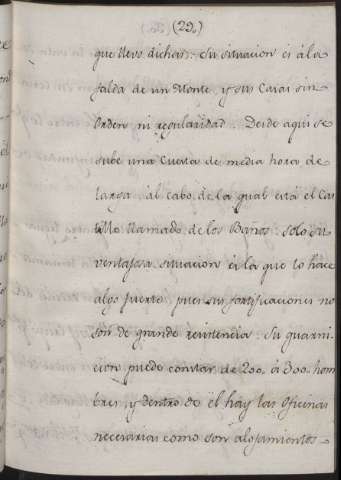 (22)
que llevo dichas. Su situacion es á la
falda de un Monte y sus Casas sin
Orden ni regularidad. Desde aqui se
sube una Cuesta de media hora de
larga al cabo de la qual está el Cas
tillo llamado de los Baños: solo su
ventajosa situacion es la que lo hace
algo fuerte, pues sus fortificaciones no
son de grande resistencia. Su guarni
cion puede constar de 200. á 300. hom
bres, y dentro de él hay las Oficinas
necesarias como son alojamientos